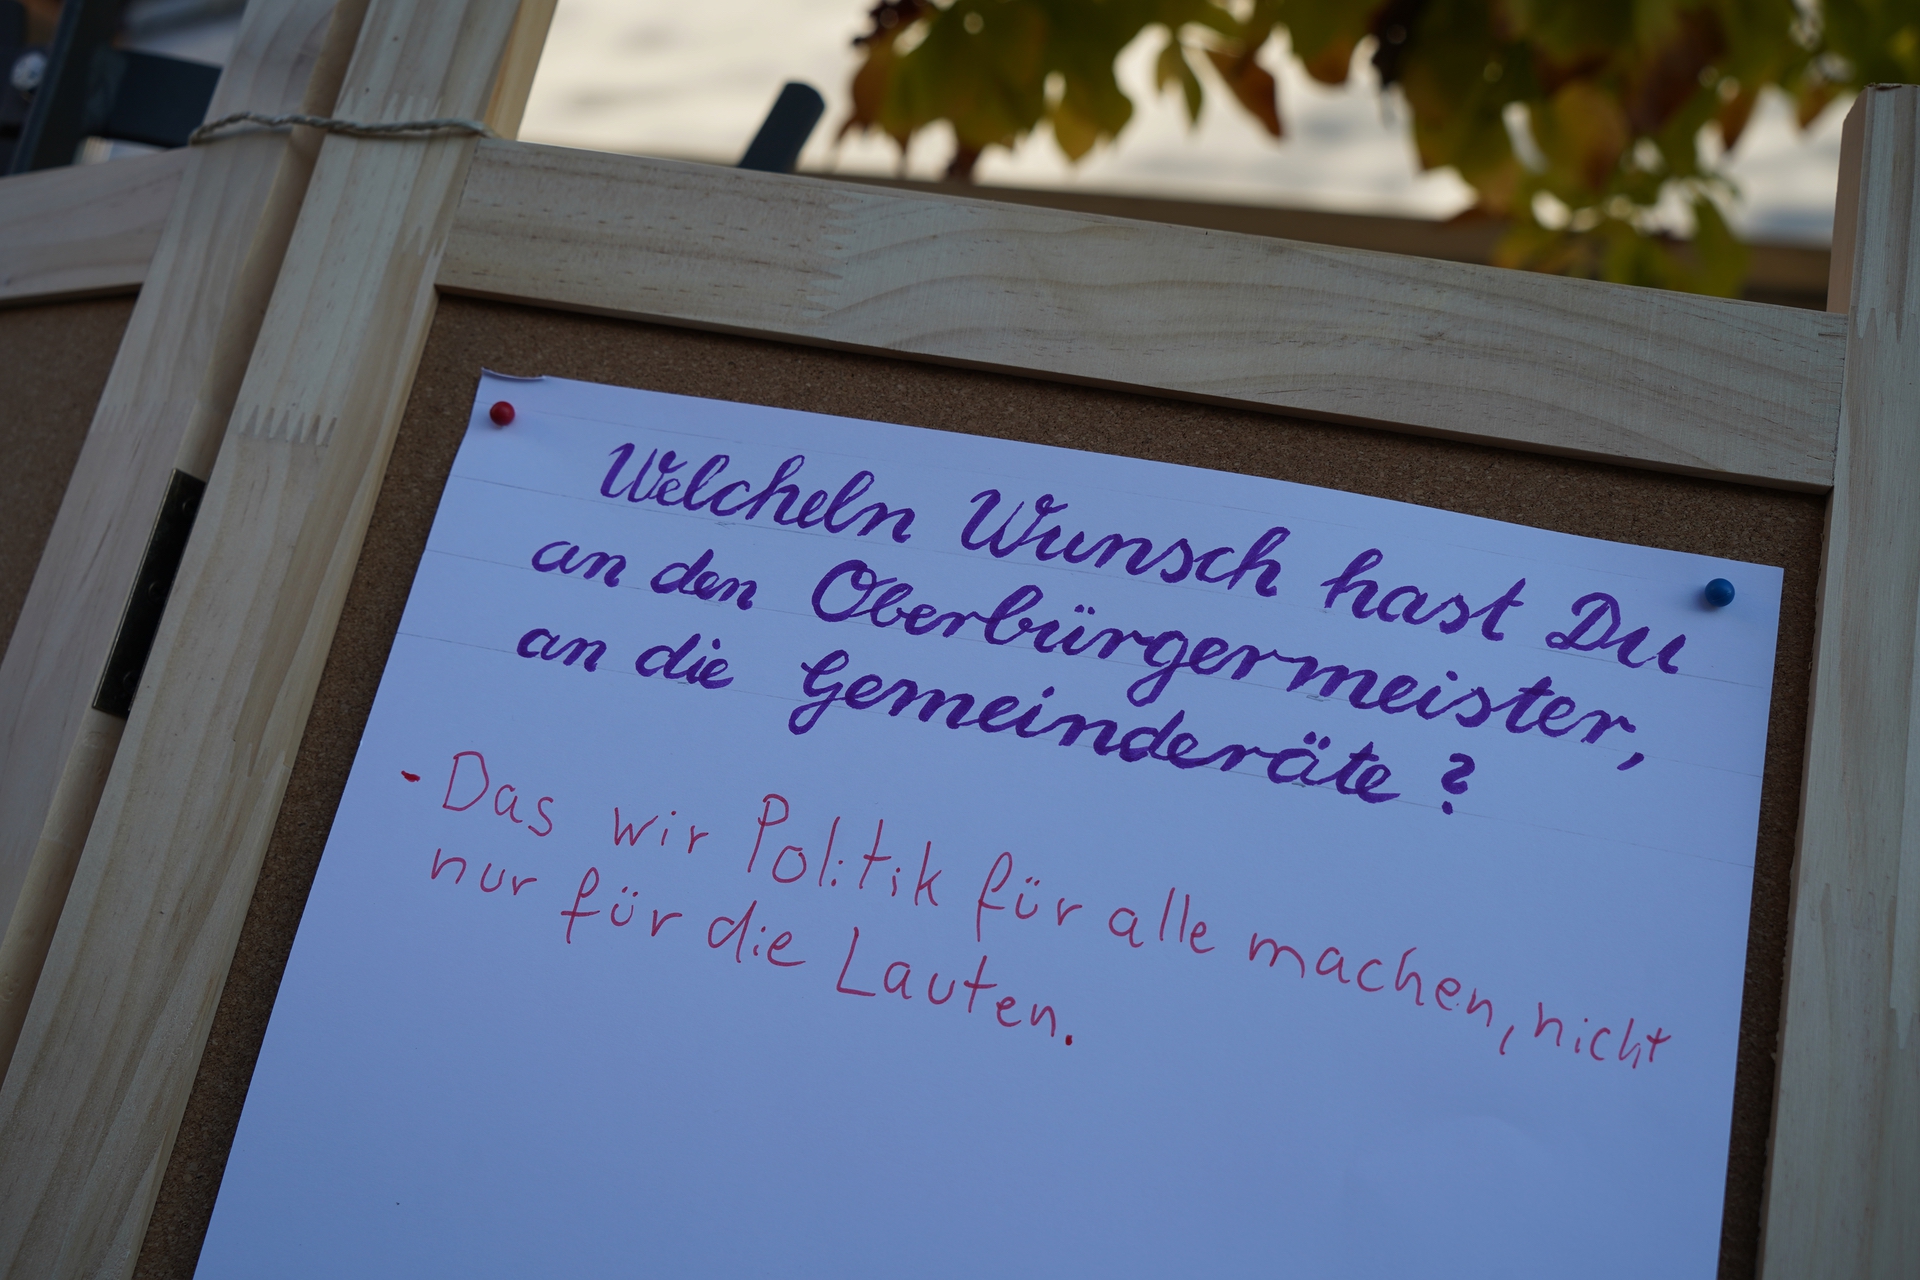 Welcheln Wunsch hast Du
an den Oberbürgermeister,
an die Gemeinderäte?
- Das wir Politik für alle machen, nicht
nur für die Lauten.